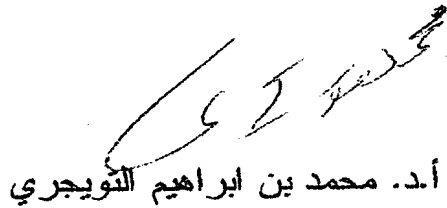 أ.د. محمد بن ابراهيم التويجري